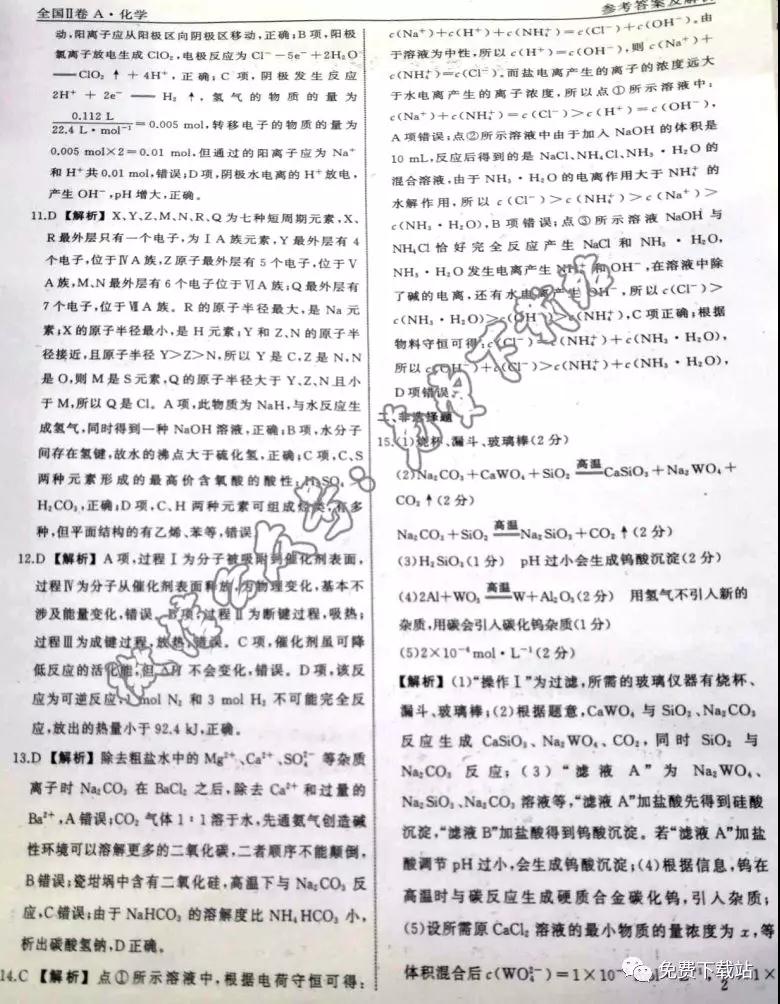 全国Ⅱ卷 A·化学
参考答案及解析
动,阳离子应从阳极区向阴极区移动,正确;B项,阳极
氯离子放电生成 ClO₂,电极反应为 Cl⁻－5e⁻＋2H₂O
══ClO₂ ↑ ＋ 4H⁺, 正确; C 项, 阴极发生反应
2H⁺ ＋ 2e⁻ ══ H₂ ↑, 氢气的物质的量为
0.112 L/22.4 L·mol⁻¹＝0.005 mol,转移电子的物质的量为
0.005 mol×2＝0.01 mol,但通过的阳离子应为 Na⁺
和 H⁺共0.01 mol,错误;D项,阴极水电离的H⁺放电,
产生 OH⁻,pH增大,正确。
11.D 【解析】X、Y、Z、M、N、R、Q为七种短周期元素,X、
R最外层只有一个电子,为ⅠA族元素,Y最外层有4
个电子,位于ⅣA族,Z原子最外层有5个电子,位于Ⅴ
A族,M、N最外层有6个电子位于ⅥA族;Q最外层有
7个电子,位于ⅦA族。R的原子半径最大,是Na元
素;X的原子半径最小,是H元素;Y和Z、N的原子半
径接近,且原子半径Y＞Z＞N,所以Y是C,Z是N,N
是O,则M是S元素,Q的原子半径大于Y、Z、N且小
于M,所以Q是Cl。A项,此物质为NaH,与水反应生
成氢气,同时得到一种NaOH溶液,正确;B项,水分子
间存在氢键,故水的沸点大于硫化氢,正确;C项,C、S
两种元素形成的最高价含氧酸的酸性:H₂SO₄＞
H₂CO₃,正确;D项,C、H两种元素可组成烃类,有多
种,但平面结构的有乙烯、苯等,错误。
12.D 【解析】A项,过程Ⅰ为分子被吸附到催化剂表面,
过程Ⅳ为分子从催化剂表面释放,为物理变化,基本不
涉及能量变化,错误。B项,过程Ⅱ为断键过程,吸热;
过程Ⅲ为成键过程,放热,错误。C项,催化剂虽可降
低反应的活化能,但ΔH不会变化,错误。D项,该反
应为可逆反应,1 mol N₂ 和 3 mol H₂ 不可能完全反
应,放出的热量小于92.4 kJ,正确。
13.D 【解析】除去粗盐水中的Mg²⁺、Ca²⁺、SO₄²⁻等杂质
离子时 Na₂CO₃ 在 BaCl₂ 之后,除去 Ca²⁺ 和过量的
Ba²⁺,A错误;CO₂气体1∶1溶于水,先通氨气创造碱
性环境可以溶解更多的二氧化碳,二者顺序不能颠倒,
B错误;瓷坩埚中含有二氧化硅,高温下与Na₂CO₃反
应,C错误;由于NaHCO₃的溶解度比NH₄HCO₃小,
析出碳酸氢钠,D正确。
14.C 【解析】点①所示溶液中,根据电荷守恒可得:
c(Na⁺)＋c(H⁺)＋c(NH₄⁺)＝c(Cl⁻)＋c(OH⁻)。由
于溶液为中性,所以c(H⁺)＝c(OH⁻),则c(Na⁺)＋
c(NH₄⁺)＝c(Cl⁻)。而盐电离产生的离子的浓度远大
于水电离产生的离子浓度,所以点①所示溶液中:
c(Na⁺)＋c(NH₄⁺)＝c(Cl⁻)＞c(H⁺)＝c(OH⁻),
A项错误;点②所示溶液中由于加入NaOH的体积是
10 mL,反应后得到的是NaCl、NH₄Cl、NH₃·H₂O的
混合溶液,由于NH₃·H₂O的电离作用大于NH₄⁺的
水解作用,所以c(Cl⁻)＞c(NH₄⁺)＞c(Na⁺)＞
c(NH₃·H₂O),B项错误;点③所示溶液NaOH与
NH₄Cl恰好完全反应产生NaCl和NH₃·H₂O,
NH₃·H₂O发生电离产生NH₄⁺和OH⁻,在溶液中除
了碱的电离,还有水电离产生OH⁻,所以c(Cl⁻)＞
c(NH₃·H₂O)＞c(OH⁻)＞c(NH₄⁺),C项正确;根据
物料守恒可得:c(Cl⁻)＝c(NH₄⁺)＋c(NH₃·H₂O),
所以c(OH⁻)＋c(Cl⁻)＞c(NH₄⁺)＋c(NH₃·H₂O),
D项错误。
二、非选择题
15.(1)烧杯、漏斗、玻璃棒(2分)
(2)Na₂CO₃＋CaWO₄＋SiO₂ 高温══ CaSiO₃＋Na₂WO₄＋
CO₂↑(2分)
Na₂CO₃＋SiO₂ 高温══ Na₂SiO₃＋CO₂↑(2分)
(3)H₂SiO₃(1分) pH过小会生成钨酸沉淀(2分)
(4)2Al＋WO₃ 高温══ W＋Al₂O₃(2分) 用氢气不引入新的
杂质,用碳会引入碳化钨杂质(1分)
(5)2×10⁻⁴mol·L⁻¹(2分)
【解析】(1)“操作Ⅰ”为过滤,所需的玻璃仪器有烧杯、
漏斗、玻璃棒;(2)根据题意,CaWO₄与SiO₂、Na₂CO₃
反应生成CaSiO₃、Na₂WO₄、CO₂,同时SiO₂与
Na₂CO₃反应;(3)“滤液A”为Na₂WO₄、
Na₂SiO₃、Na₂CO₃溶液等,“滤液A”加盐酸先得到硅酸
沉淀,“滤液B”加盐酸得到钨酸沉淀。若“滤液A”加盐
酸调节pH过小,会生成钨酸沉淀;(4)根据信息,钨在
高温时与碳反应生成硬质合金碳化钨,引入杂质;
(5)设所需原CaCl₂溶液的最小物质的量浓度为x,等
体积混合后c(WO₄²⁻)＝1×10⁻
1×
2
免费下载站